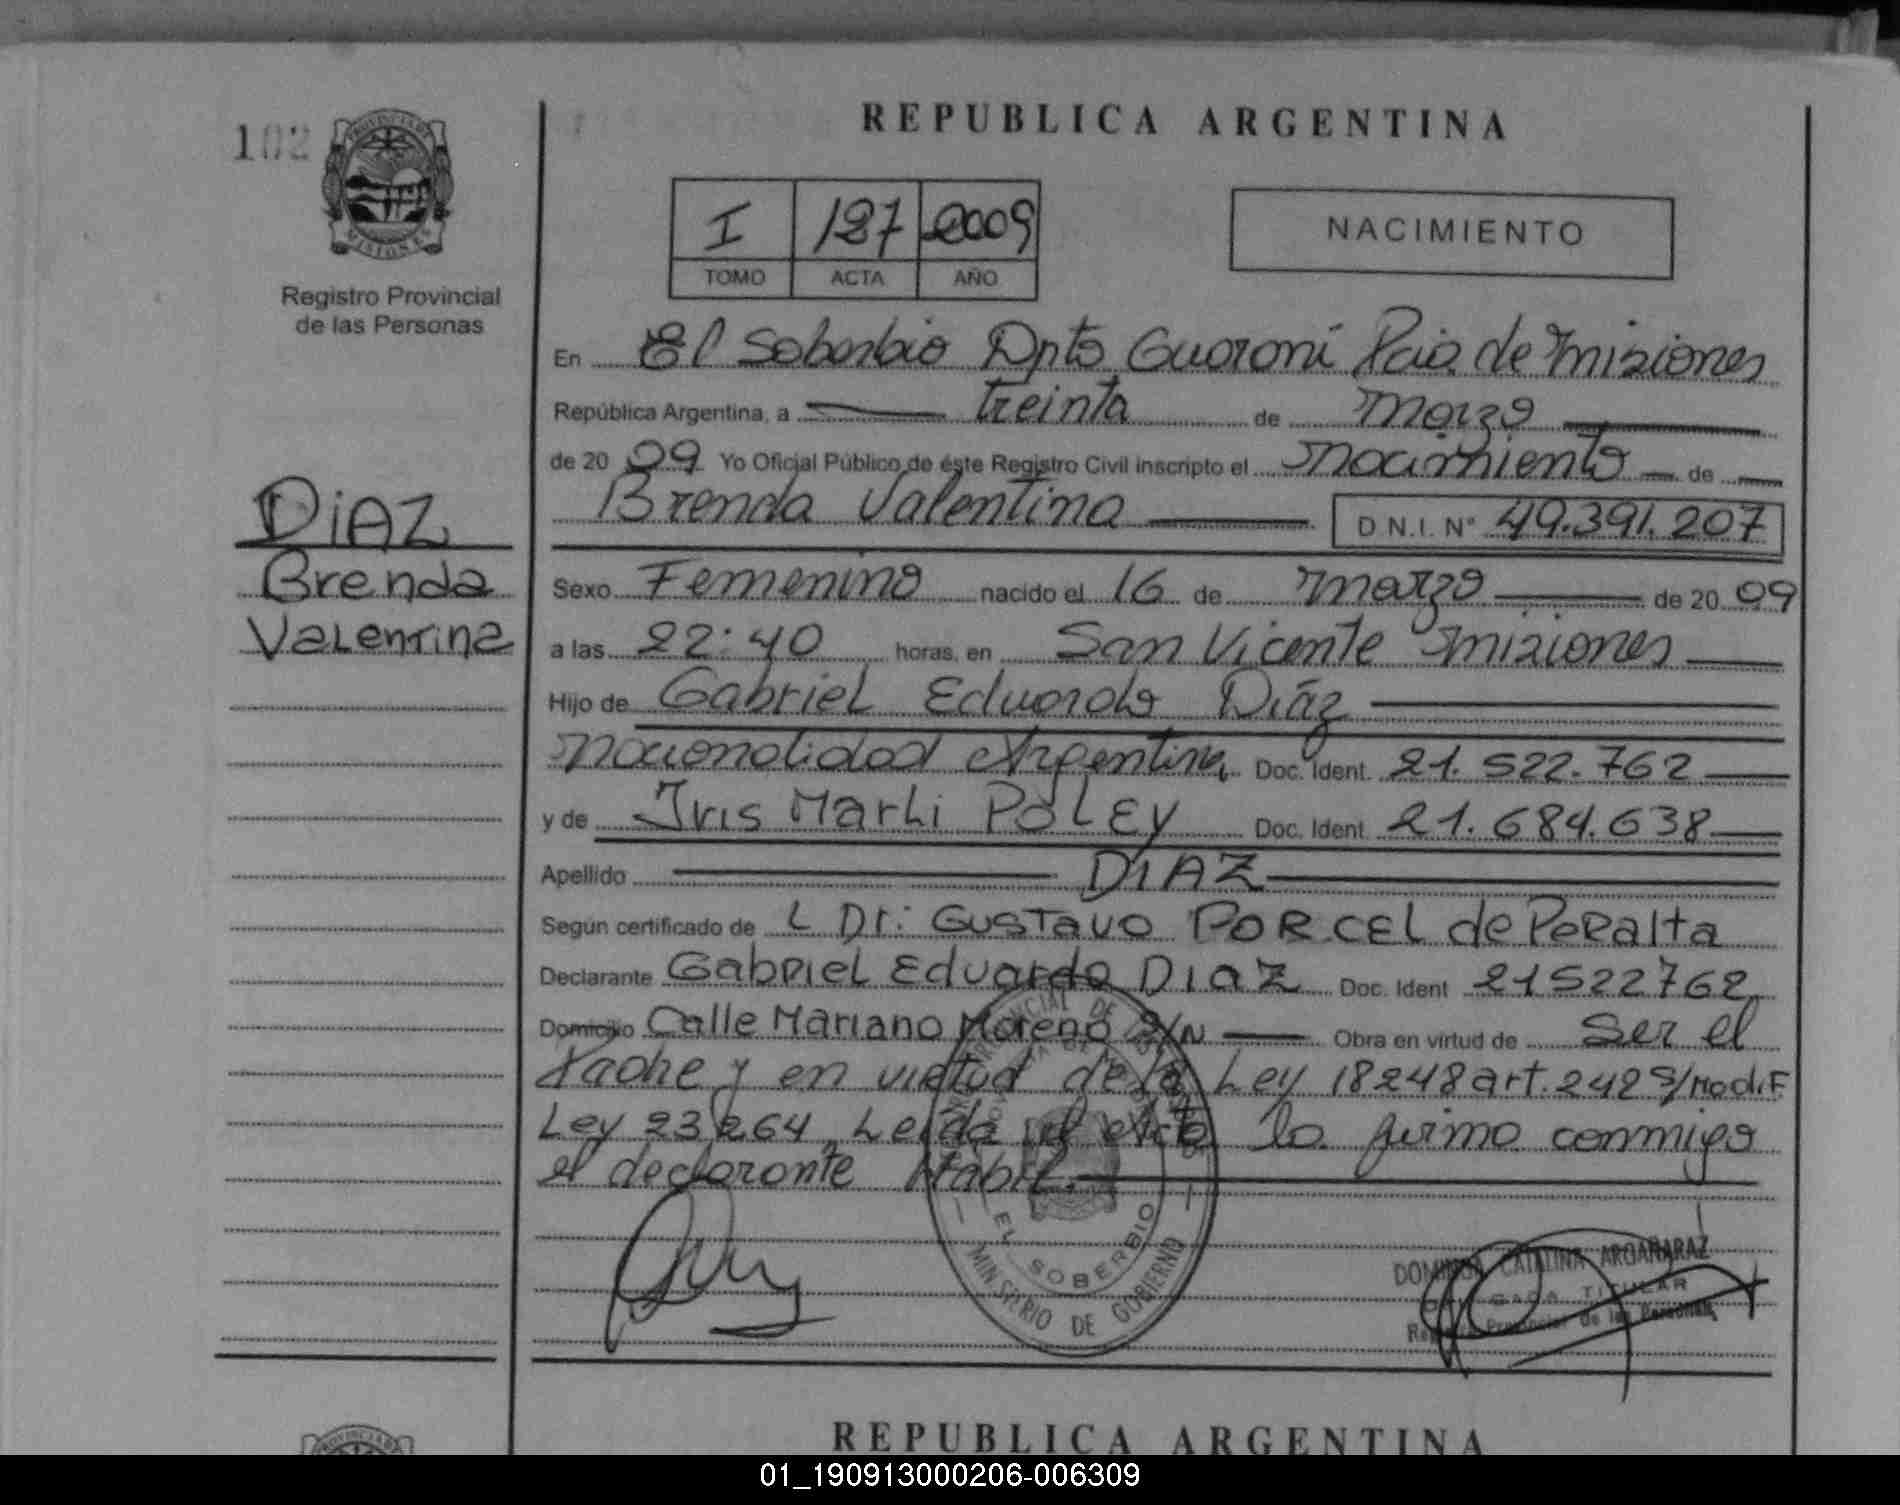 102
PROVINCIA DE
MISIONES
Registro Provincial
de las Personas
DiAZ
Brenda
Valentina
REPUBLICA ARGENTINA
I 127 2009
TOMO ACTA AÑO
NACIMIENTO
En El Soberbio Dpto Guaraní Pcia. de Misiones
República Argentina, a treinta de Marzo
de 20 09 Yo Oficial Público de éste Registro Civil inscripto el Nacimiento de
Brenda Valentina D.N.I. N° 49.391.207
Sexo Femenino nacido el 16 de Marzo de 20 09
a las 22:40 horas, en San Vicente Misiones
Hijo de Gabriel Eduardo Diáz
Nacionalidad Argentina Doc. Ident. 21.522.762
y de Iris Marli POLEY Doc. Ident. 21.684.638
Apellido DIAZ
Según certificado de L Dr: GUSTAVO PORCEL de PeRalta
Declarante Gabriel Eduardo DIAZ Doc. Ident 21522762
Domicilio Calle Mariano Moreno S/N Obra en virtud de Ser el
Padre y en virtud de la Ley 18248 art. 242 S/Modif
Ley 23264, Leída el Acta la firma conmigo
el declarante Habil.
EL SOBERBIO
MINISTERIO DE GOBIERNO
DOMINGA CATALINA ARGAÑARAZ
TITULAR
Registro Provincial de las Personas
REPUBLICA ARGENTINA
01_190913000206-006309